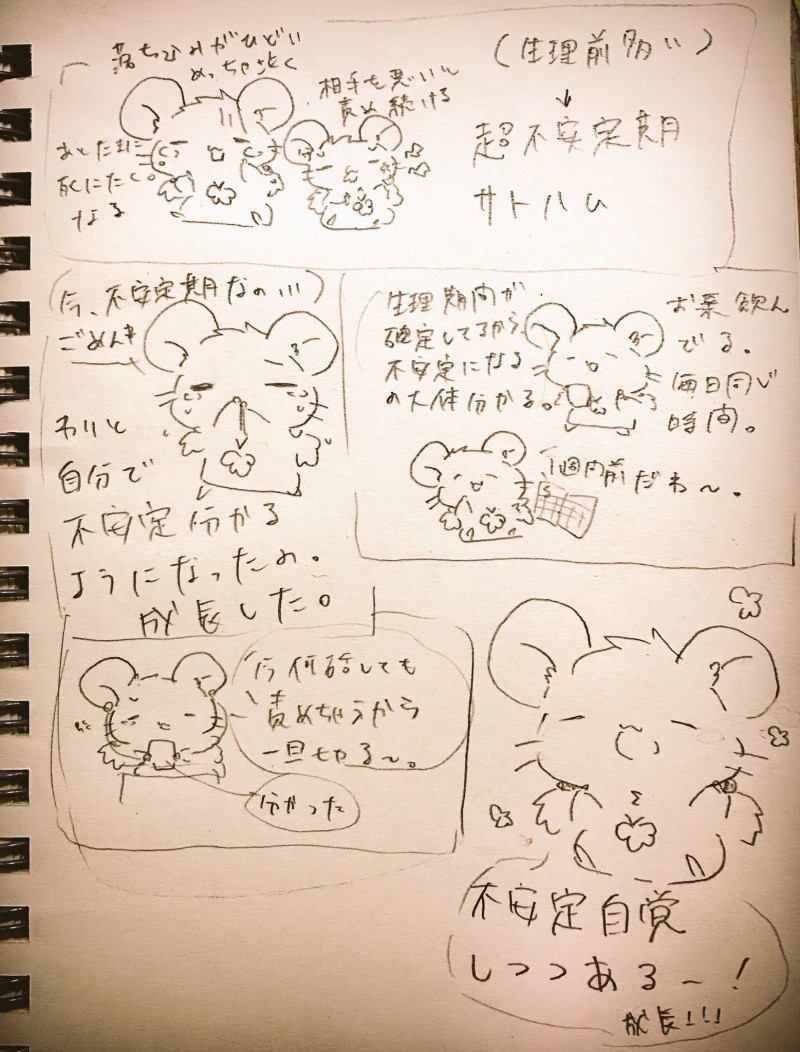 落ち込みがひどい
めっちゃ泣く
相手を悪い〜
責め続ける
あとたまに
死にたく
なる
(生理前多い)
↓
超不安定期
サトハム
今、不安定期なの...
ごめんネ
わりと
自分で
不安定分かる
ようになったの。
成長した。
生理期間が
確定してるから
不安定になる
の大体分かる。
お薬飲ん
でる。
毎日同じ
時間。
1週間前だわ〜。
今何話しても
責めちゃうから
一旦やる〜。
分かった
不安定自覚
しつつある〜!
成長!!!